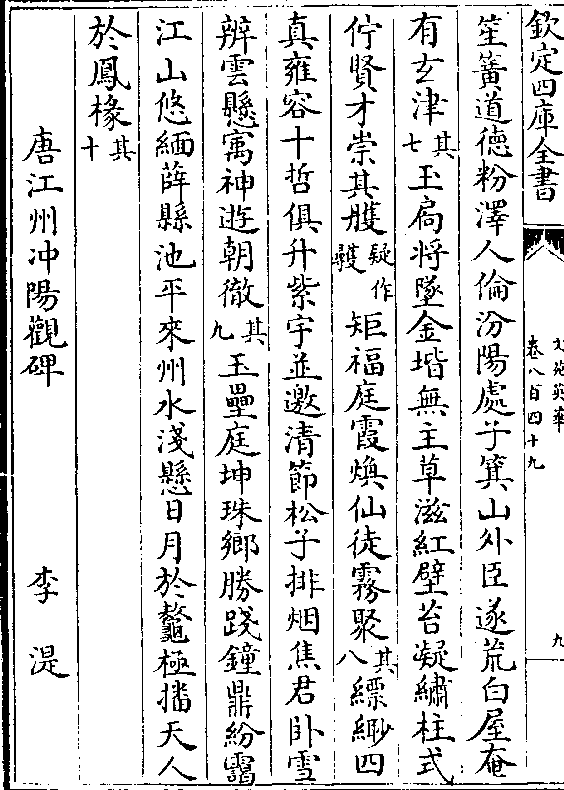 欽定四庫全書
文苑英華
卷八百四十九
九
笙簧道德粉澤人倫汾陽處子箕山外臣遂荒白屋奄
有玄津其七玉扄將墜金堦無主草滋紅壁苔凝繡柱式
佇賢才崇其臒疑作矱矩福庭霞煥仙徒霧聚其八縹緲四
真雍容十哲俱升紫宇並邀清節松子排烟焦君卧雪
辨雲懸寓神遊朝徹其九玉壘庭坤珠鄉勝踐鐘鼎紛靄
江山悠緬薛縣池平來州水淺懸日月於鼇極播天人
於鳳椽其十
唐江州冲陽觀碑 李湜